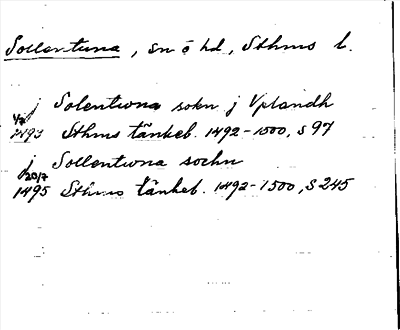 Sollentuna, sn o hd, Sthms l.
j Solentwna sokn j Vplandh
4/2 1493 Sthms tänkeb. 1492-1500, s 97
j Sollentwna sochn
20/7 1495 Sthms tänkeb. 1492-1500, s 245